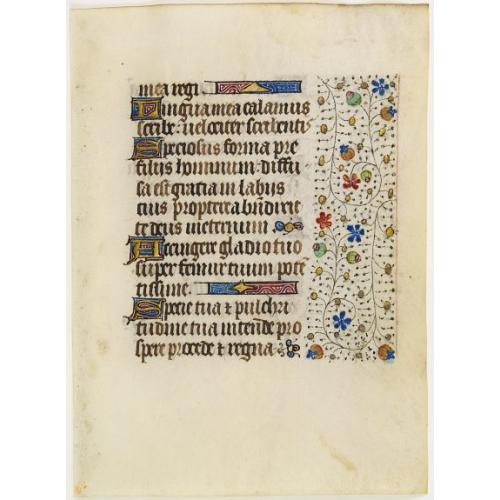 mea regi
Lingua mea calamus
scribe: uelociter scribenti
Speciosus forma pre
filiis hominum: diffu
sa est gratia in labiis
tuis propterea bndixit
te deus in eternum
Accingere gladio tuo
super femur tuum pote
tissime
Specie tua ⁊ pulchri
tudine tua intende pro
spere procede ⁊ regna